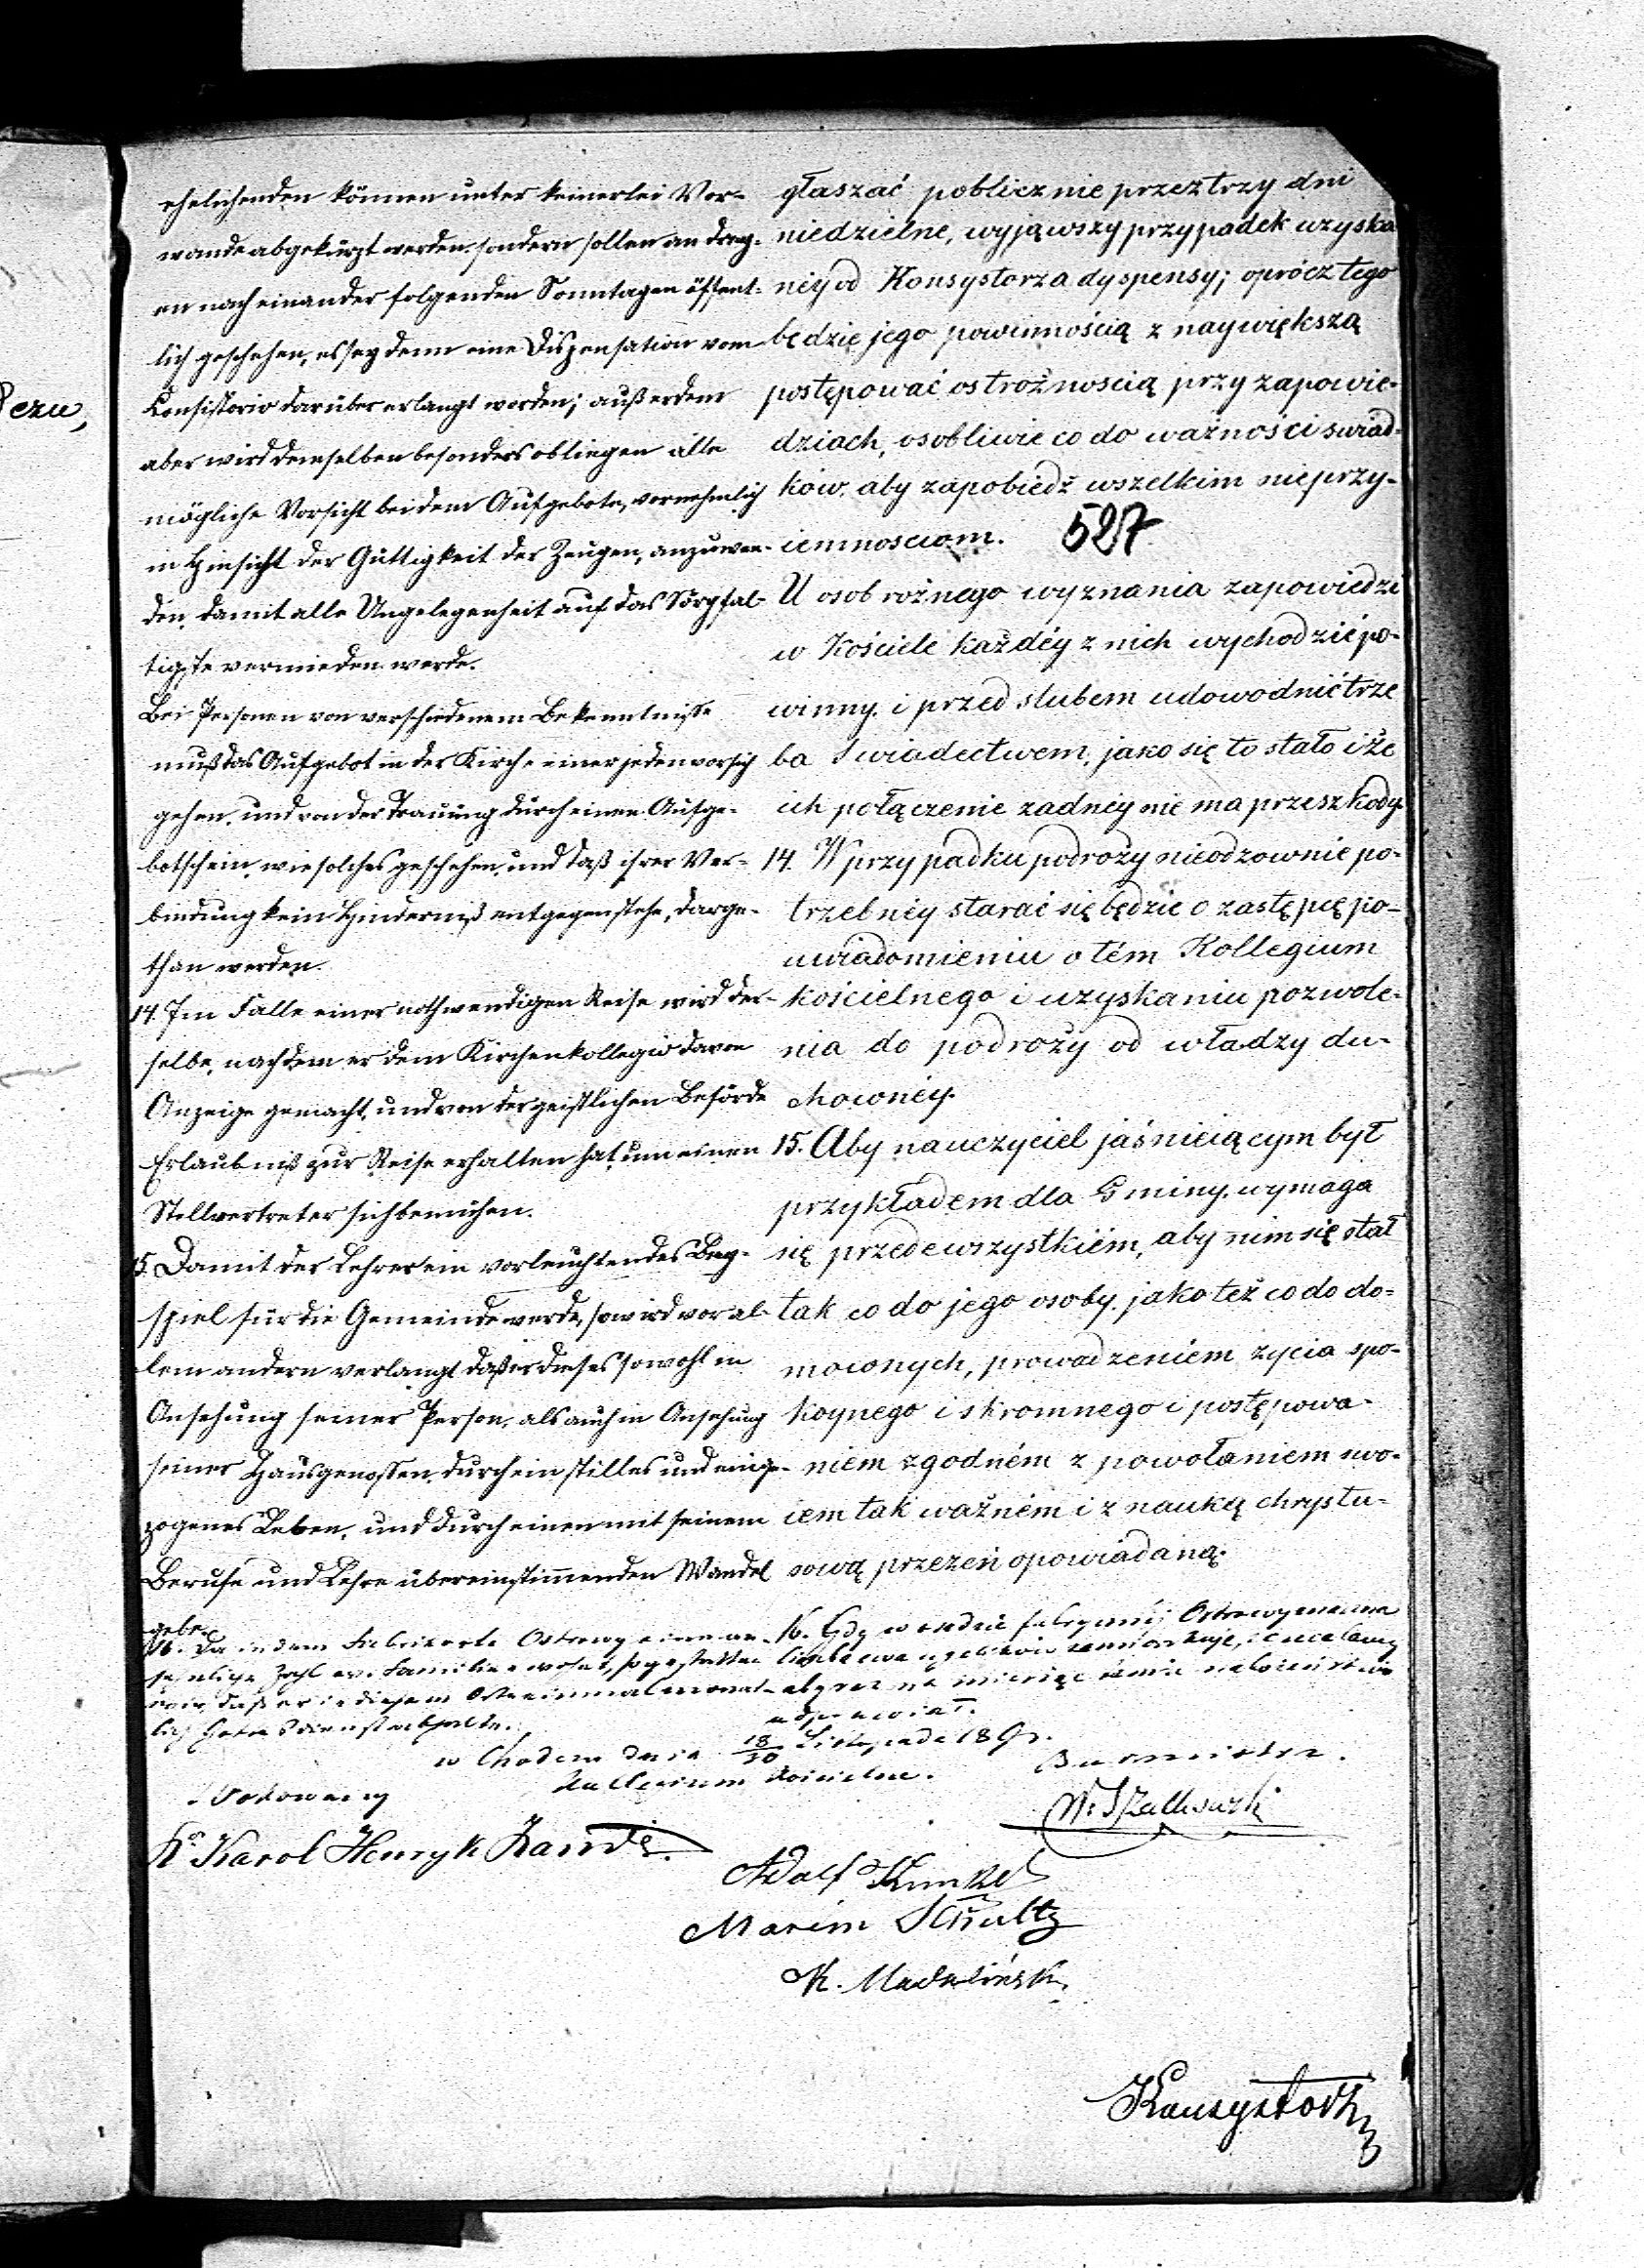 ehelichenden können unter keinerlei Vor-
wande abgekürzt werden, sondern sollen an drey-
en nach einander folgenden Sonntagen öffent-
lich geschehen, es sey denn eine Dispensation vom
Consistorio darüber erlangt worden; außerdem
aber wird demselben besonders obliegen alle
mögliche Vorsicht bei dem Aufgebote, vornehmlich
in Hinsicht der Gültigkeit der Zeugen, anzuwen-
den, damit alle Ungelegenheit auf das Sorgfäl-
tigste vermieden werde.
Bei Personen von verschiedenem Bekenntnisse
muß das Aufgebot in der Kirche einer jeden vor sich
gehen, und vor der Trauung durch einen Aufge-
botschein, wie solches geschehen, und daß ihrer Ver-
bindung kein Hinderniß entgegenstehe, darge-
than werden.
14. Im Falle einer nothwendigen Reise wird der-
selbe, nachdem er dem Kirchenkollegio davon
Anzeige gemacht, und von der geistlichen Behörde
Erlaubniß zur Reise erhalten hat, um einen
Stellvertreter sich bemühen.
15. Damit der Lehrer ein vorleuchtendes Bey-
spiel für die Gemeinde werde, so wird vor al-
lem andern verlangt, daß er dieses sowohl in
Ansehung seiner Person, als auch in Ansehung
seiner Hausgenossen, durch ein stilles und einge-
zogenes Leben, und durch einen mit seinem
Berufe und Lehre übereinstimmenden Wandel
gebe.
16. Da in dem Fabrikorte Ostrowy eine an-
sehnliche Zahl ev. Familien wohnt, so gestatten
wir, daß er in diesem Orte einmal monat-
lich Gottesdienst abhalte.
głaszać poblicznie przez trzy dni
niedzielne, wyjąwszy przypadek uzyska
néy od Konsystorza dyspensy; oprócz tego
będzie jego powinnością z naywiększą
postępować ostrożnoscią przy zapowie-
dziach, osobliwie co do ważności swiad-
ków, aby zapobiedź wszelkim nieprzy-
iemnosciom. 527
U osob rożnego wyznania zapowiedzi
w Kościele każdéy z nich wychodzić po-
winny, i przed slubem udowodnić trze
ba Swiadectwem, jako się to stało i że
ich połączenie zadnéy nie ma przeszkody.
14. W przypadku podroży nieodzownie po-
trzebnéy starać się będzie o zastępcę po-
uwiadomieniu o tém Kollegium
kościelnego i uzyskaniu pozwole-
nia do podroży od władzy du-
chownéy.
15. Aby nauczyciel jaśnieiącym był
przykładem dla Gminy, wymaga
się przedewszystkiém, aby nim się stał
tak co do jego osoby, jako też co do do-
mowych, prowadzeniém życia spo-
koynego i skromnego i postępowa-
niem zgodném z powołaniem swo-
iem tak ważném i z nauką chrystu-
sową przezeń opowiadaną.
16. Gdy w osadzie fabrycznéj Ostrowy znaczna
liczba ewangelików zamieszkuje, zezwalamy
aby raz na miesiąc tamże nabożeństwo
odprawiał.
w Chodczu dnia 18/30 Listopada 18
Kollegium Kościelne.
Burmistrz.
Wokowany
Ks Karol Henryk Zander
Adolf Kunkel
Marcin Schultz
K. Madaliński
Konsystorz